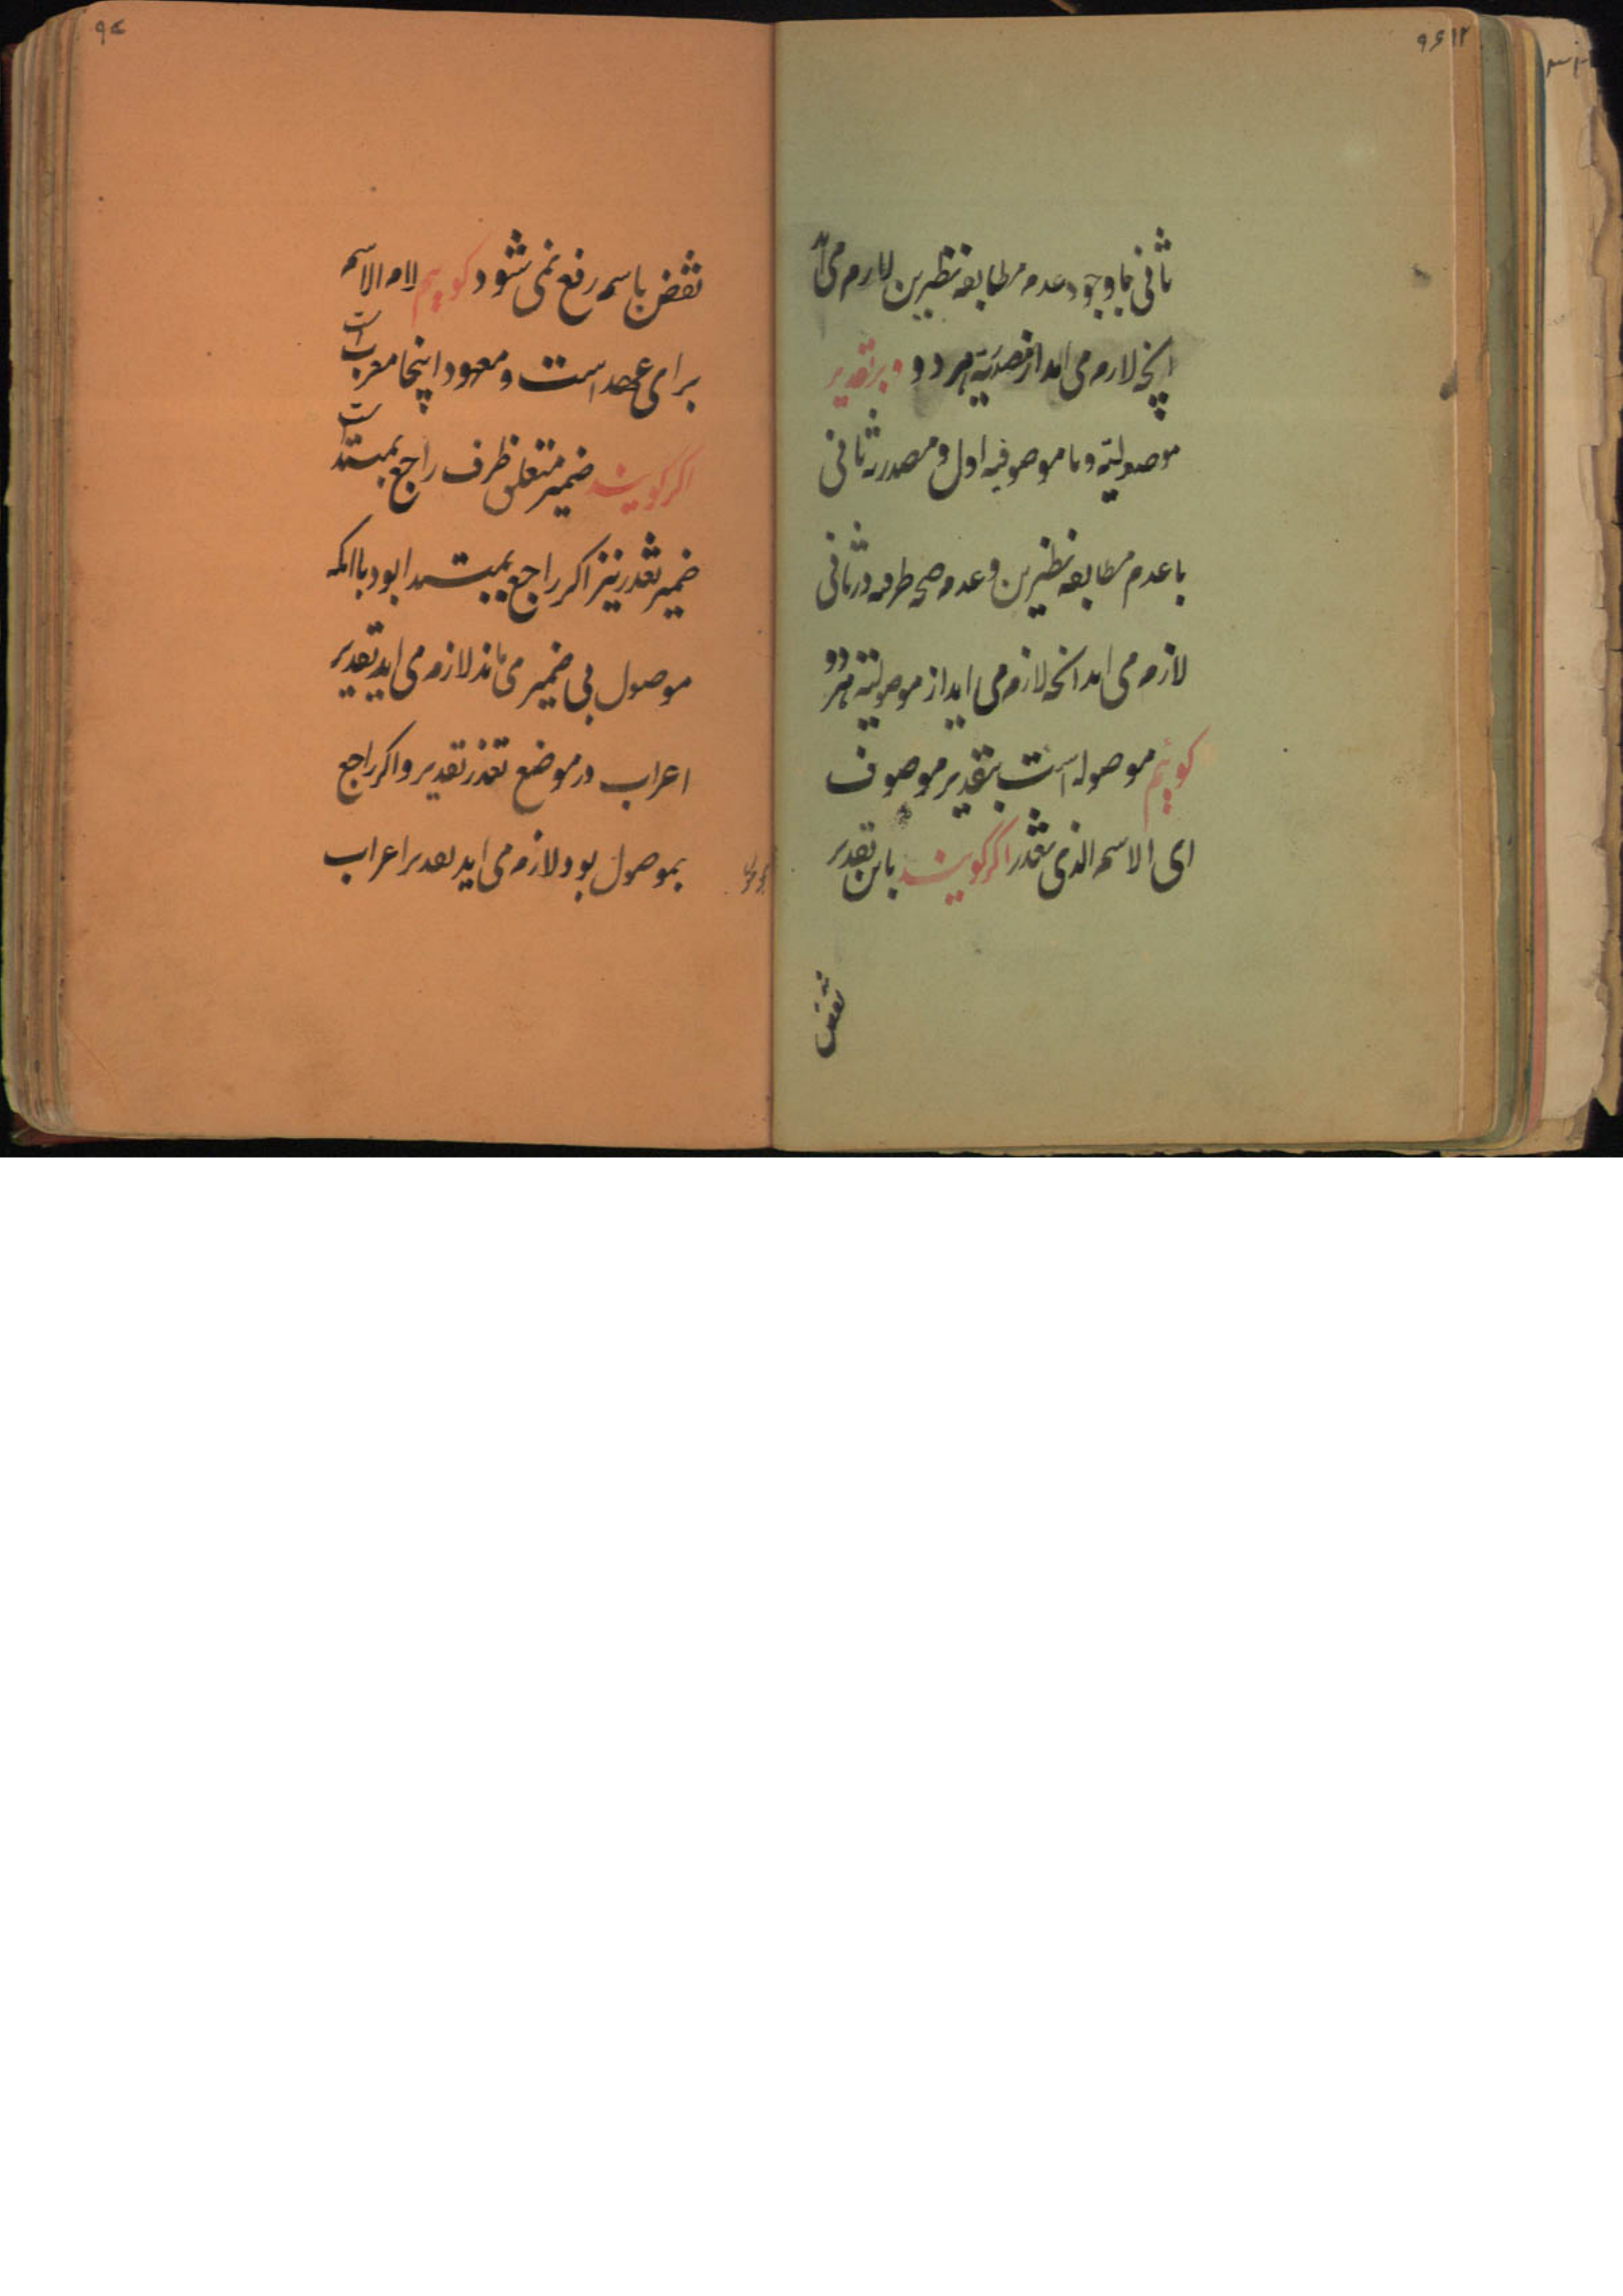 ثانی باوجود عدم مطابقه نظیرین لازم می اید
انچه لازم می اید از مصدریة هر دو و بر تقدیر
موصولیة و ما موصوفیه اول و مصدریه ثانی
با عدم مطابقه نظیرین و عدم صحه ظرفه در ثانی
لازم می اید انچه لازم می اید از موصولیة هر دو
کوئیم موصوله است بتقدیر موصوف
ای الاسم الذی تعذر اکر کویند باین تقدیر
نقض
۹۷
نقض باسم رفع نمی شود کوییم لام الاسم
برای عهد است و معهود اینجا معرب است
اکر کویند ضمیر متعلق ظرف راجع بمبتدا است
ضمیر تعذر نیز اکر راجع بمبتدا بود با انکه
موصول بی ضمیر می ماند لازم می اید تقدیر
اعراب در موضع تعذر تقدیر و اکر راجع
بموصول بود لازم می اید تقدیر اعراب